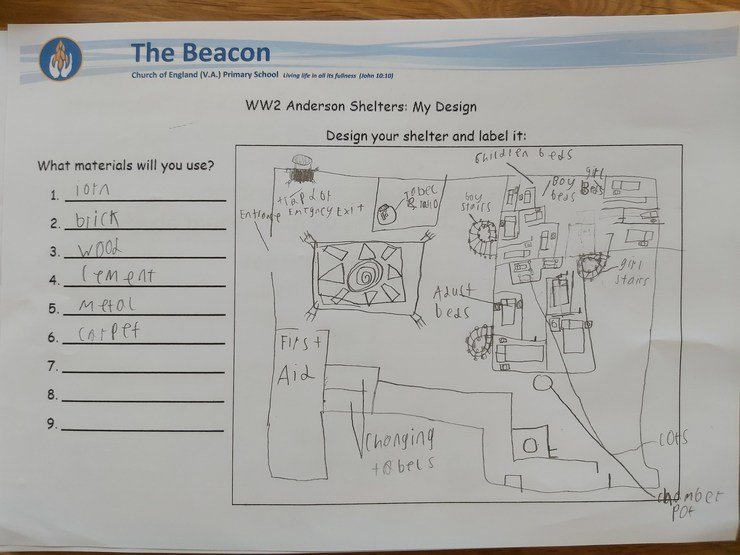 The Beacon
Church of England (V.A.) Primary School Living life in all its fullness (John 10:10)
WW2 Anderson Shelters: My Design
What materials will you use?
1. iorn
2. brick
3. wood
4. cement
5. metal
6. carpet
7.
8.
9.
Design your shelter and label it:
children beds
trap dor
Emtgncy Exit
Entrance
tabel
& radio
boy
stairs
boy
beds
girl
Beds
girl
stairs
Adust
beds
First
Aid
Changing
tabels
cots
chamber
pot